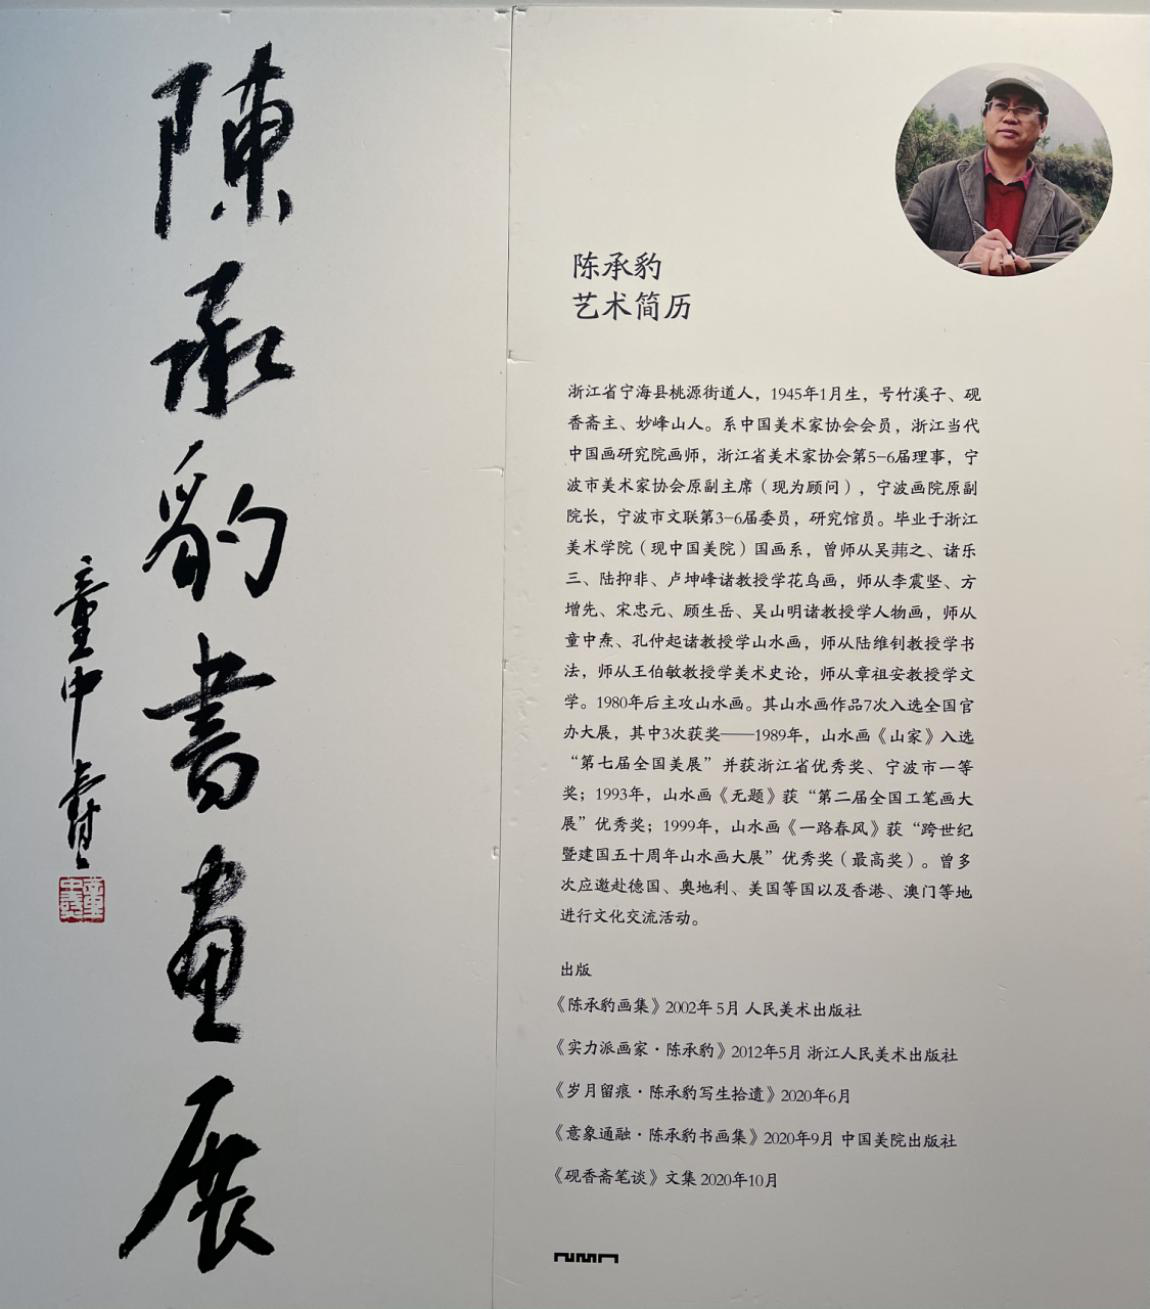 陳承豹書畫展
童中燾
陈承豹
艺术简历
浙江省宁海县桃源街道人，1945年1月生，号竹溪子、砚
香斋主、妙峰山人。系中国美术家协会会员，浙江当代
中国画研究院画师，浙江省美术家协会第5-6届理事，宁
波市美术家协会原副主席（现为顾问），宁波画院原副
院长，宁波市文联第3-6届委员，研究馆员。毕业于浙江
美术学院（现中国美院）国画系，曾师从吴茀之、诸乐
三、陆抑非、卢坤峰诸教授学花鸟画，师从李震坚、方
增先、宋忠元、顾生岳、吴山明诸教授学人物画，师从
童中焘、孔仲起诸教授学山水画，师从陆维钊教授学书
法，师从王伯敏教授学美术史论，师从章祖安教授学文
学。1980年后主攻山水画。其山水画作品7次入选全国官
办大展，其中3次获奖——1989年，山水画《山家》入选
“第七届全国美展”并获浙江省优秀奖、宁波市一等
奖；1993年，山水画《无题》获“第二届全国工笔画大
展”优秀奖；1999年，山水画《一路春风》获“跨世纪
暨建国五十周年山水画大展”优秀奖（最高奖）。曾多
次应邀赴德国、奥地利、美国等国以及香港、澳门等地
进行文化交流活动。
出版
《陈承豹画集》2002年 5月 人民美术出版社
《实力派画家·陈承豹》2012年5月 浙江人民美术出版社
《岁月留痕·陈承豹写生拾遗》2020年6月
《意象通融·陈承豹书画集》2020年9月 中国美院出版社
《砚香斋笔谈》文集 2020年10月